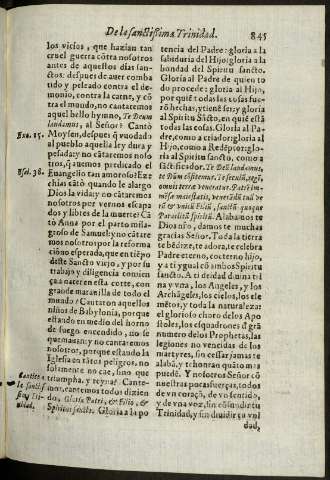 De la sanctissima Trinidad.
845
los vicios, que hazian tan
cruel guerra cōtra nosotros
antes de aquellos dias san-
ctos: despues de auer comba
tido y peleado contra el de-
monio, contra la carne, y cō
tra el mundo, no cantaremos
aquel bello hymno, Te Deum
laudamus, al Señor? Cantò
Exo. 15.
Moysen, despues q̄ vuo dado
al pueblo aquella ley dura y
pesada: y no cātaremos noso
tros, q̄ auemos predicado el
Psal. 38.
Euangelio tan amoroso? Eze
chias cātò quando le alargo
Dios la vida: y no cātaremos
nosotros por vernos escapa
dos y libres de la muerte? Cā
tò Anna por el parto mila-
groso de Samuel: y no cātare
mos nosotros por la reforma
ciō no esperada, que en tiēpo
deste Sancto viejo, y por su
trabajo y diligencia comien
ça a nacer en esta corte, con
grande marauilla de todo el
mundo? Cantaron aquellos
niños de Babylonia, porque
estando en medio del horno
de fuego encendido, no se
quemauan: y no cantaremos
nosotros, porque estando la
Iglesia en tātos peligros, no
solamente no cae, sino que
triumpha, y reyna? Cante-
mos, cantemos todos dizien
do, Gloria Patri, & Filio, &
Spiritui sancto. Gloria a la po
tencia del Padre: gloria a la
sabiduria del Hijo: gloria a la
bondad del Spiritu sancto.
Gloria al Padre de quien to
do procede: gloria al Hijo,
por quiē todas las cosas fue
rō hechas, y tienē ser: gloria
al Spiritu Sācto, en quiē estā
todas las cosas. Gloria al Pa-
dre, como a criador: gloria al
Hijo, como a Redēptor: glo-
ria al Spiritu sancto, como a
sāctificador. Te Deū laudamus,
te Dñm cōfitemur. Te
omnis terra veneratur. Patrē im-
mēsæ maiestatis, venerādū tuū ve
rū & vnicū Filiū, sanctū quoque
Paraclitū spiritū. Alabamos te
Dios nr̄o, damos te muchas
gracias Señor. Toda la tierra
te bēdize, te adora, te celebra
Padre eterno, co eterno hijo,
y a ti ygual cō ambos Spiritu
sancto. A ti deidad diuina tri
na y vna, los Angeles, y los
Archāgeles, los cielos, los ele
mētos, y toda la naturaleza: a ti
el glorioso choro de los Apo
stoles, el esquadron de grā
numero de los Prophetas, las
legiones no vencidas de los
martyres, sin cessar jamas te
alabā, y te honran quāto mas
puedē. Y nosotros Señor cō
nuestras pocas fuerças, todos
de vn coraçō, de vo sentido,
y de vna voz, sin cōfundir tu
Trinidad, y sin diuidir tu vni
dad,